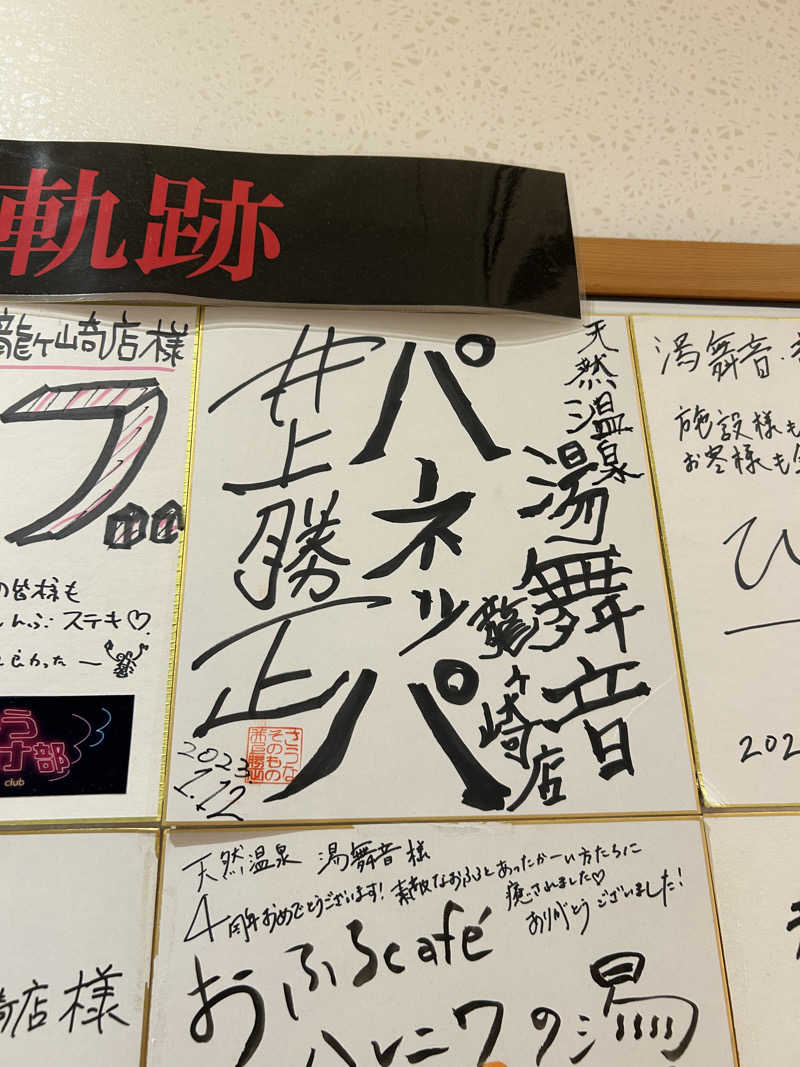 軌跡
龍ケ崎店様
の皆様も
ステキ♡
良かったー
部
club
天然温泉
湯舞音
龍ヶ崎店
パネッパ
井上勝正
2023
1.12
さうな
そのもの
井上勝正
湯舞音
施設様も
お客様も
ひ
202
天然温泉 湯舞音様
4周年おめでとうございます! 素敵なおふろとあったかーい方たちに
癒されました♡
ありがとうございました!
おふろcafé
ハレニワの湯
崎店様